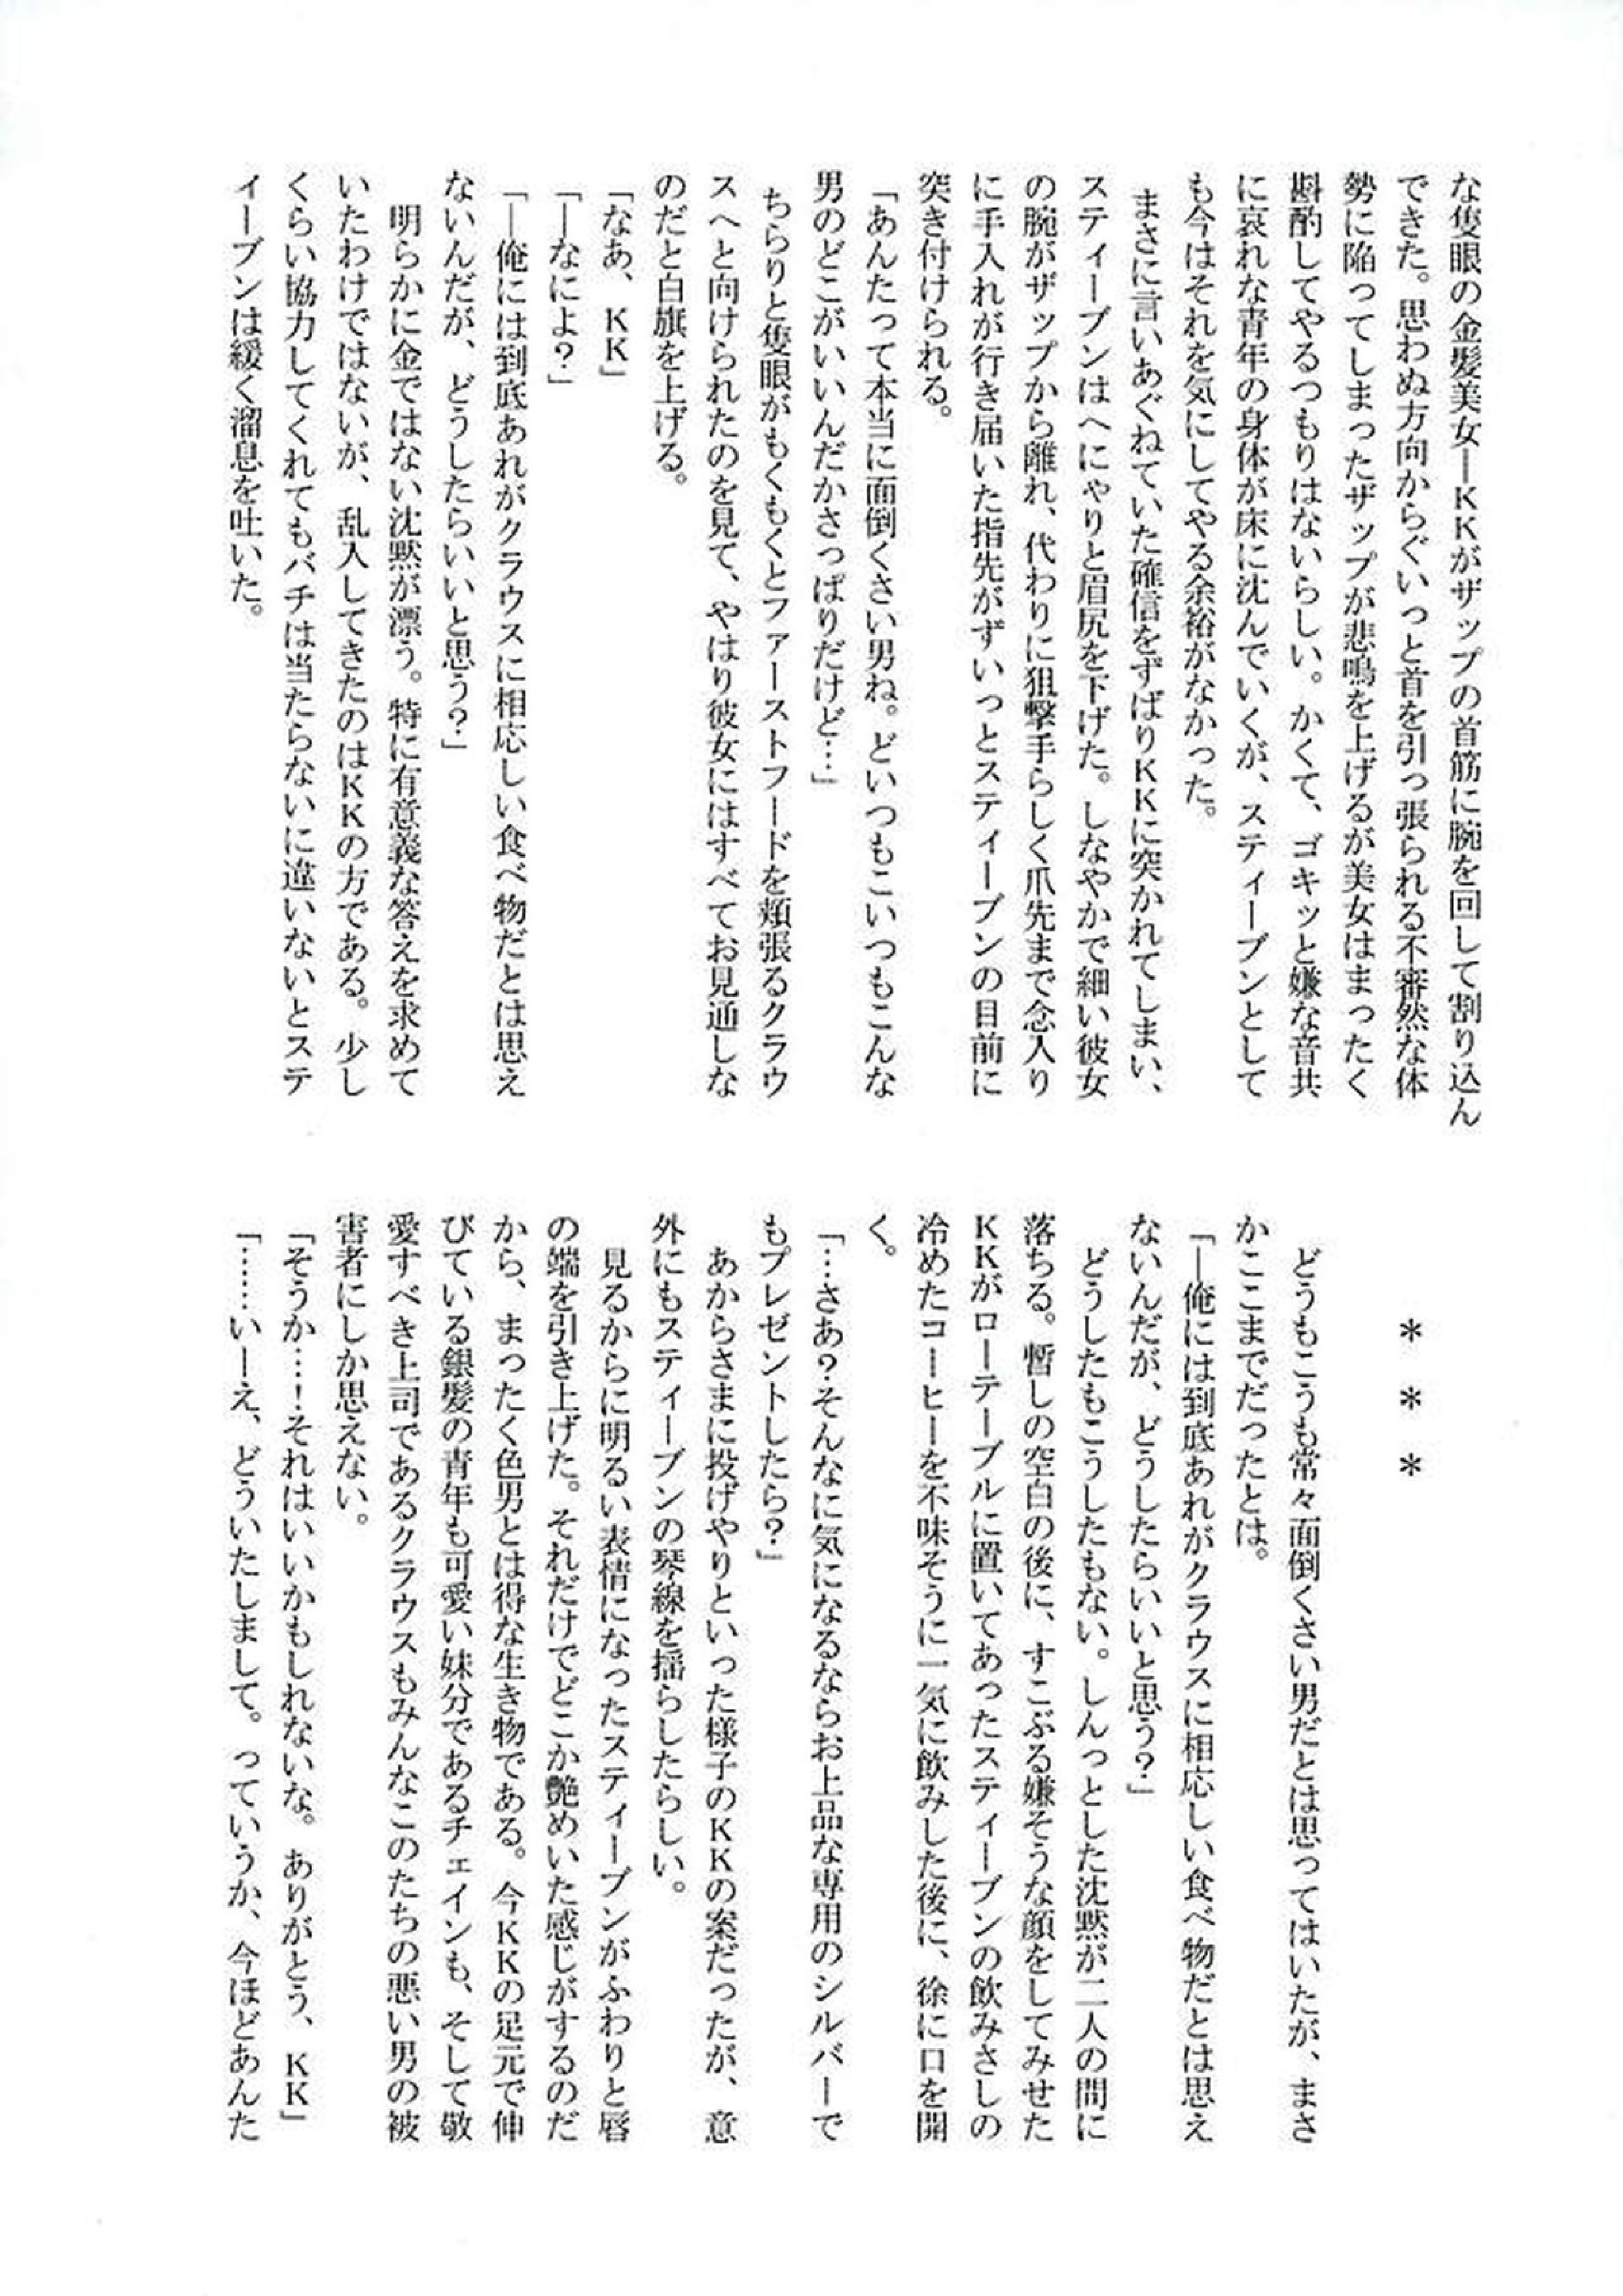 な隻眼の金髪美女―KKがザップの首筋に腕を回して割り込ん
できた。思わぬ方向からぐいっと首を引っ張られる不審然な体
勢に陥ってしまったザップが悲鳴を上げるが美女はまったく
斟酌してやるつもりはないらしい。かくて、ゴキッと嫌な音共
に哀れな青年の身体が床に沈んでいくが、スティーブンとして
も今はそれを気にしてやる余裕がなかった。
まさに言いあぐねていた確信をずばりKKに突かれてしまい、
スティーブンはへにゃりと眉尻を下げた。しなやかで細い彼女
の腕がザップから離れ、代わりに狙撃手らしく爪先まで念入り
に手入れが行き届いた指先がずいっとスティーブンの目前に
突き付けられる。
「あんたって本当に面倒くさい男ね。どいつもこいつもこんな
男のどこがいいんだかさっぱりだけど…」
ちらりと隻眼がもくもくとファーストフードを頬張るクラウ
スへと向けられたのを見て、やはり彼女にはすべてお見通しな
のだと白旗を上げる。
「なあ、KK」
「―なによ?」
「―俺には到底あれがクラウスに相応しい食べ物だとは思え
ないんだが、どうしたらいいと思う?」
明らかに金ではない沈黙が漂う。特に有意義な答えを求めて
いたわけではないが、乱入してきたのはKKの方である。少し
くらい協力してくれてもバチは当たらないに違いないとステ
ィーブンは緩く溜息を吐いた。
＊ ＊ ＊
どうもこうも常々面倒くさい男だとは思ってはいたが、まさ
かここまでだったとは。
「―俺には到底あれがクラウスに相応しい食べ物だとは思え
ないんだが、どうしたらいいと思う?」
どうしたもこうしたもない。しんっとした沈黙が二人の間に
落ちる。暫しの空白の後に、すこぶる嫌そうな顔をしてみせた
KKがローテーブルに置いてあったスティーブンの飲みさしの
冷めたコーヒーを不味そうに一気に飲みした後に、徐に口を開
く。
「…さあ?そんなに気になるならお上品な専用のシルバーで
もプレゼントしたら?」
あからさまに投げやりといった様子のKKの案だったが、意
外にもスティーブンの琴線を揺らしたらしい。
見るからに明るい表情になったスティーブンがふわりと唇
の端を引き上げた。それだけでどこか艶めいた感じがするのだ
から、まったく色男とは得な生き物である。今KKの足元で伸
びている銀髪の青年も可愛い妹分であるチェインも、そして敬
愛すべき上司であるクラウスもみんなこのたちの悪い男の被
害者にしか思えない。
「そうか…!それはいいかもしれないな。ありがとう、KK」
「……いーえ、どういたしまして。っていうか、今ほどあんた